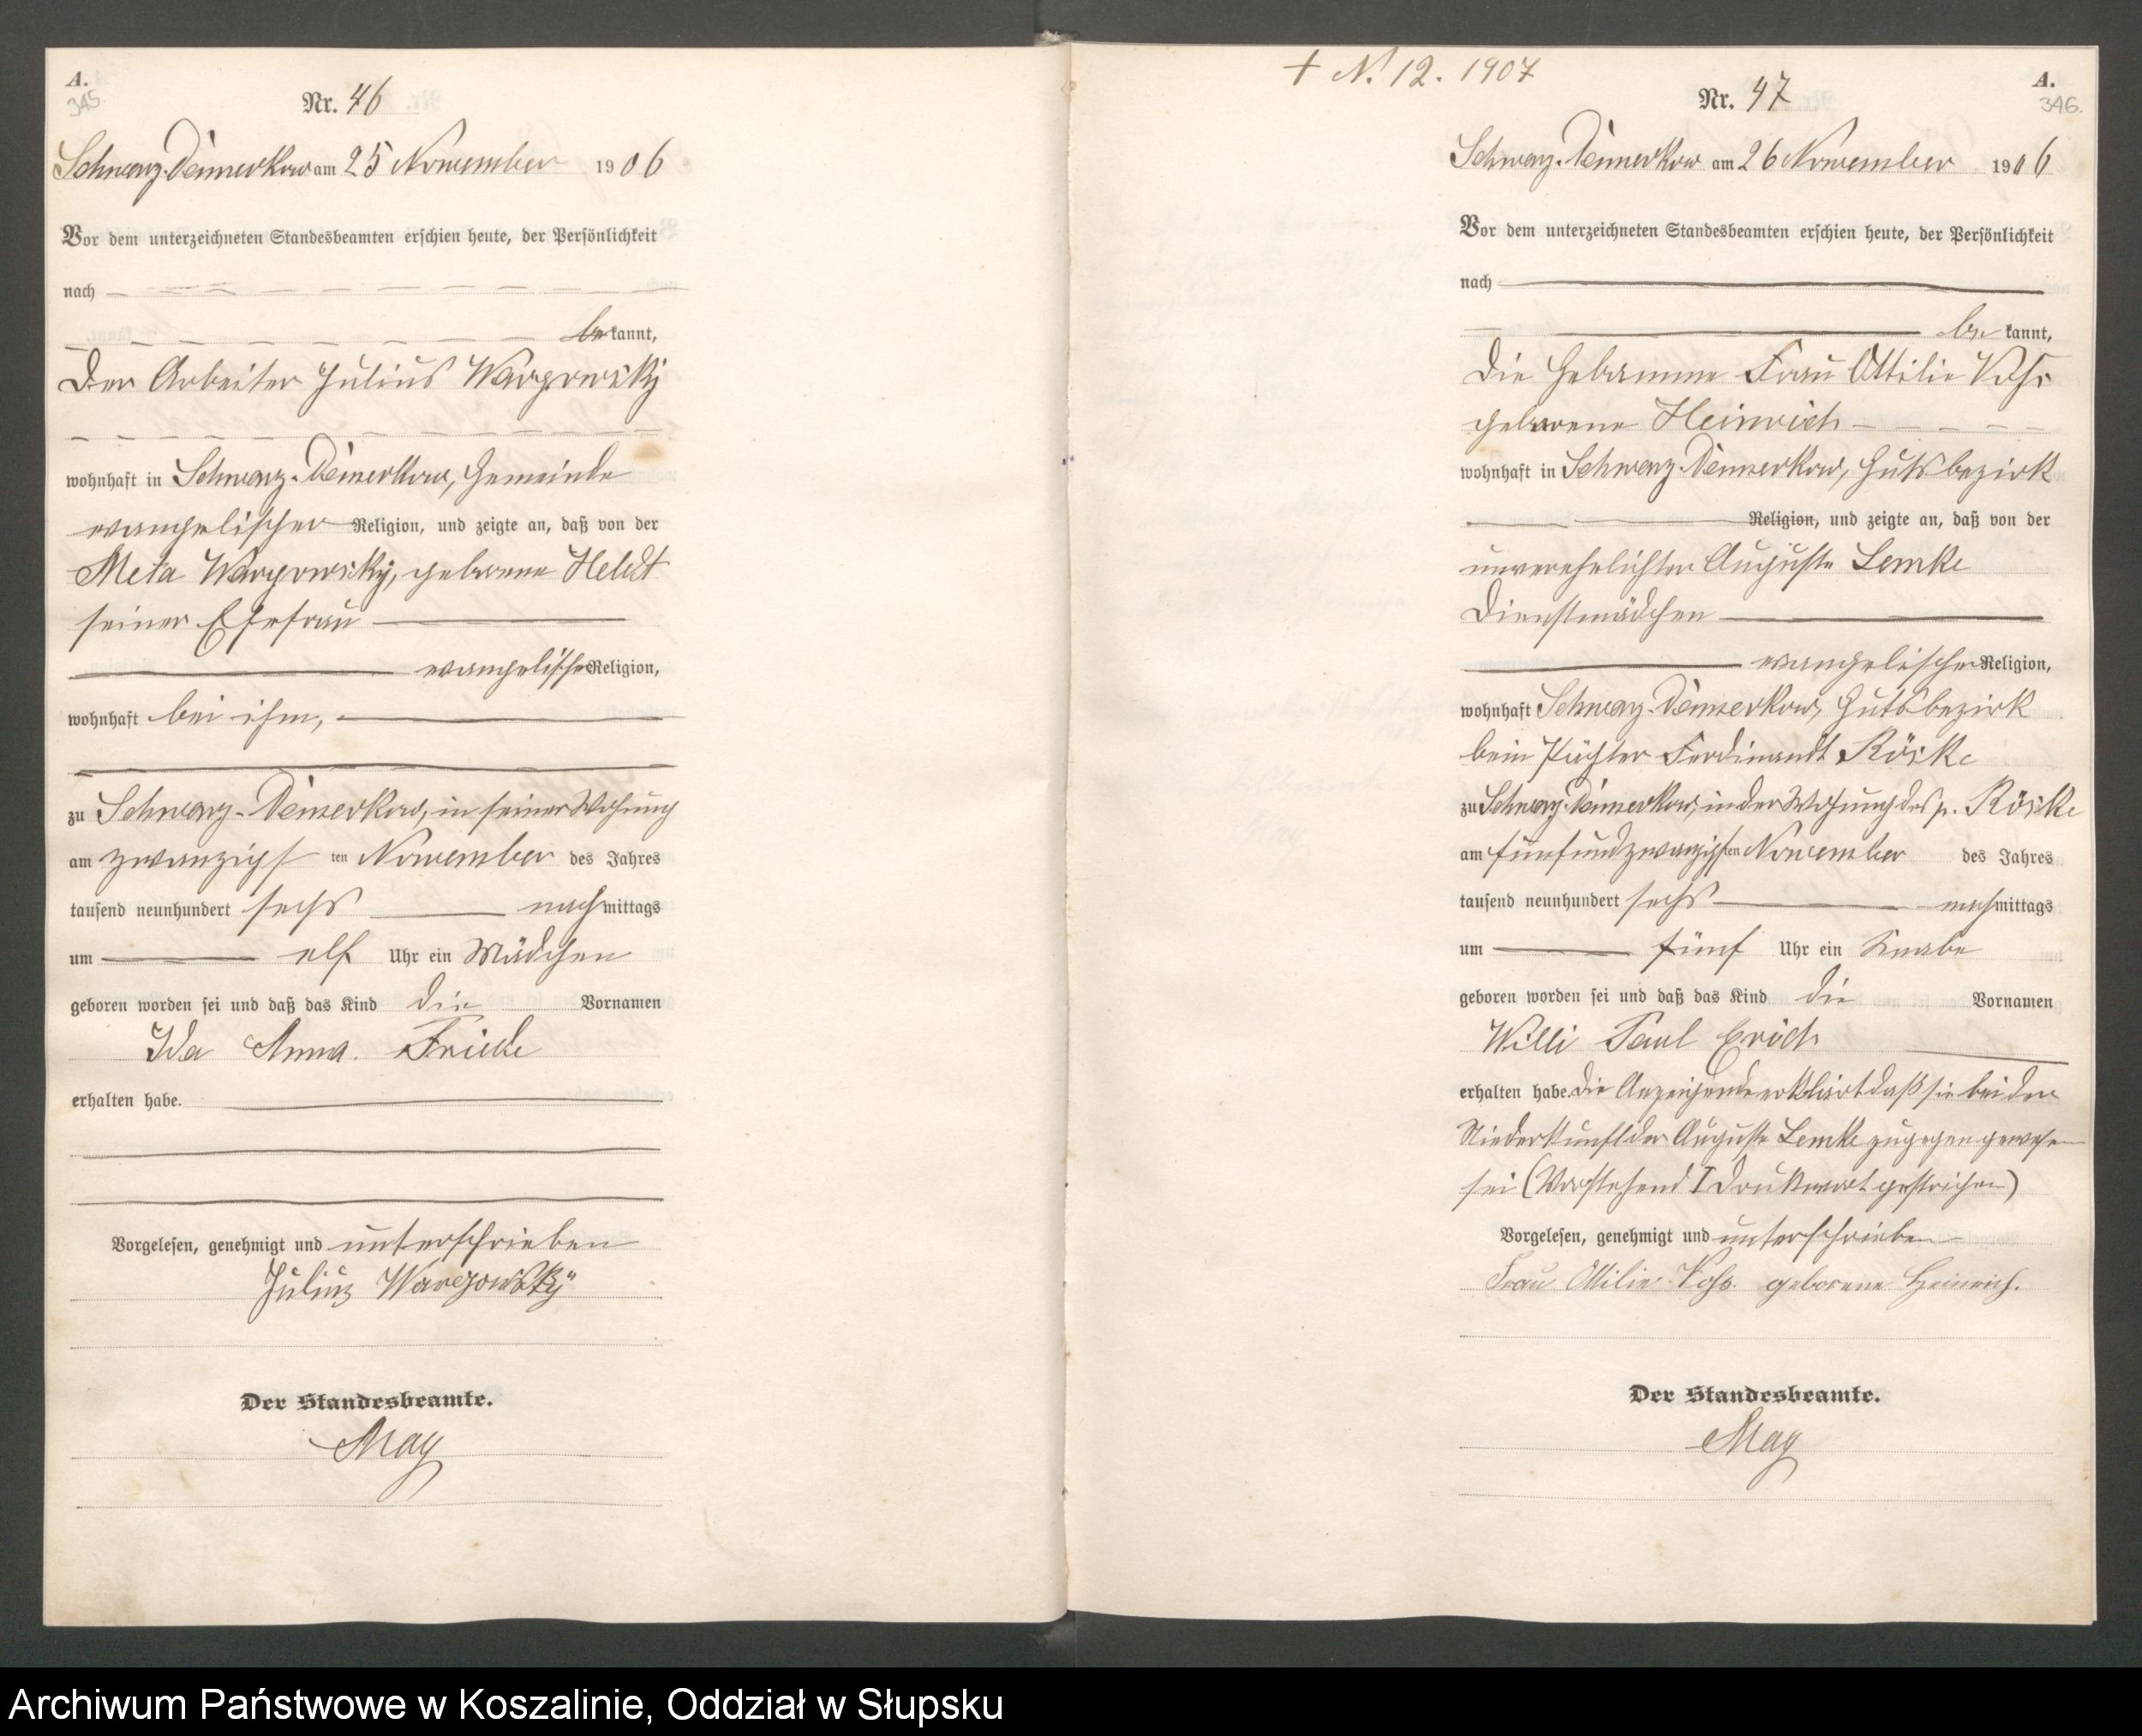 A.
345.
Nr. 46
Schwarz-Damerkow am 25 November 1906
Vor dem unterzeichneten Standesbeamten erschien heute, der Persönlichkeit
nach
be kannt,
Der Arbeiter Julius Wargowsky
wohnhaft in Schwarz-Damerkow, Gemeinde
evangelischer Religion, und zeigte an, daß von der
Meta Wargowsky, geborene Heldt
seiner Ehefrau
evangelischer Religion,
wohnhaft bei ihm,
zu Schwarz-Damerkow, in seiner Wohnung
am zwanzigst ten November des Jahres
tausend neunhundert sechs nachmittags
um elf Uhr ein Mädchen
geboren worden sei und daß das Kind die Vornamen
Ida Anna Frieda
erhalten habe.
Vorgelesen, genehmigt und unterschrieben
Julius Wargowsky
Der Standesbeamte.
May
† N. 12. 1907
A.
346.
Nr. 47
Schwarz-Damerkow am 26 November 1906
Vor dem unterzeichneten Standesbeamten erschien heute, der Persönlichkeit
nach
be kannt,
Die Hebamme Frau Ottilie Vohs
geborene Heinrich
wohnhaft in Schwarz-Damerkow, Gutsbezirk
Religion, und zeigte an, daß von der
unverehelichten Auguste Lemke
Dienstmädchen
evangelischer Religion,
wohnhaft Schwarz-Damerkow, Gutsbezirk
beim Pächter Ferdinandt Röske
zu Schwarz-Damerkow, in der Wohnung des p. Röske
am fünfundzwanzigsten November des Jahres
tausend neunhundert sechs nachmittags
um fünf Uhr ein Knabe
geboren worden sei und daß das Kind die Vornamen
Willi Paul Erich
erhalten habe. Die Anzeigende erklärt daß sie bei der
Niederkunft der Auguste Lemke zugegen gewesen
sei (Vorstehend 1 Druckwort gestrichen)
Vorgelesen, genehmigt und unterschrieben
Frau Ottilie Vohs. geborene Heinrich.
Der Standesbeamte.
May
Archiwum Państwowe w Koszalinie, Oddział w Słupsku